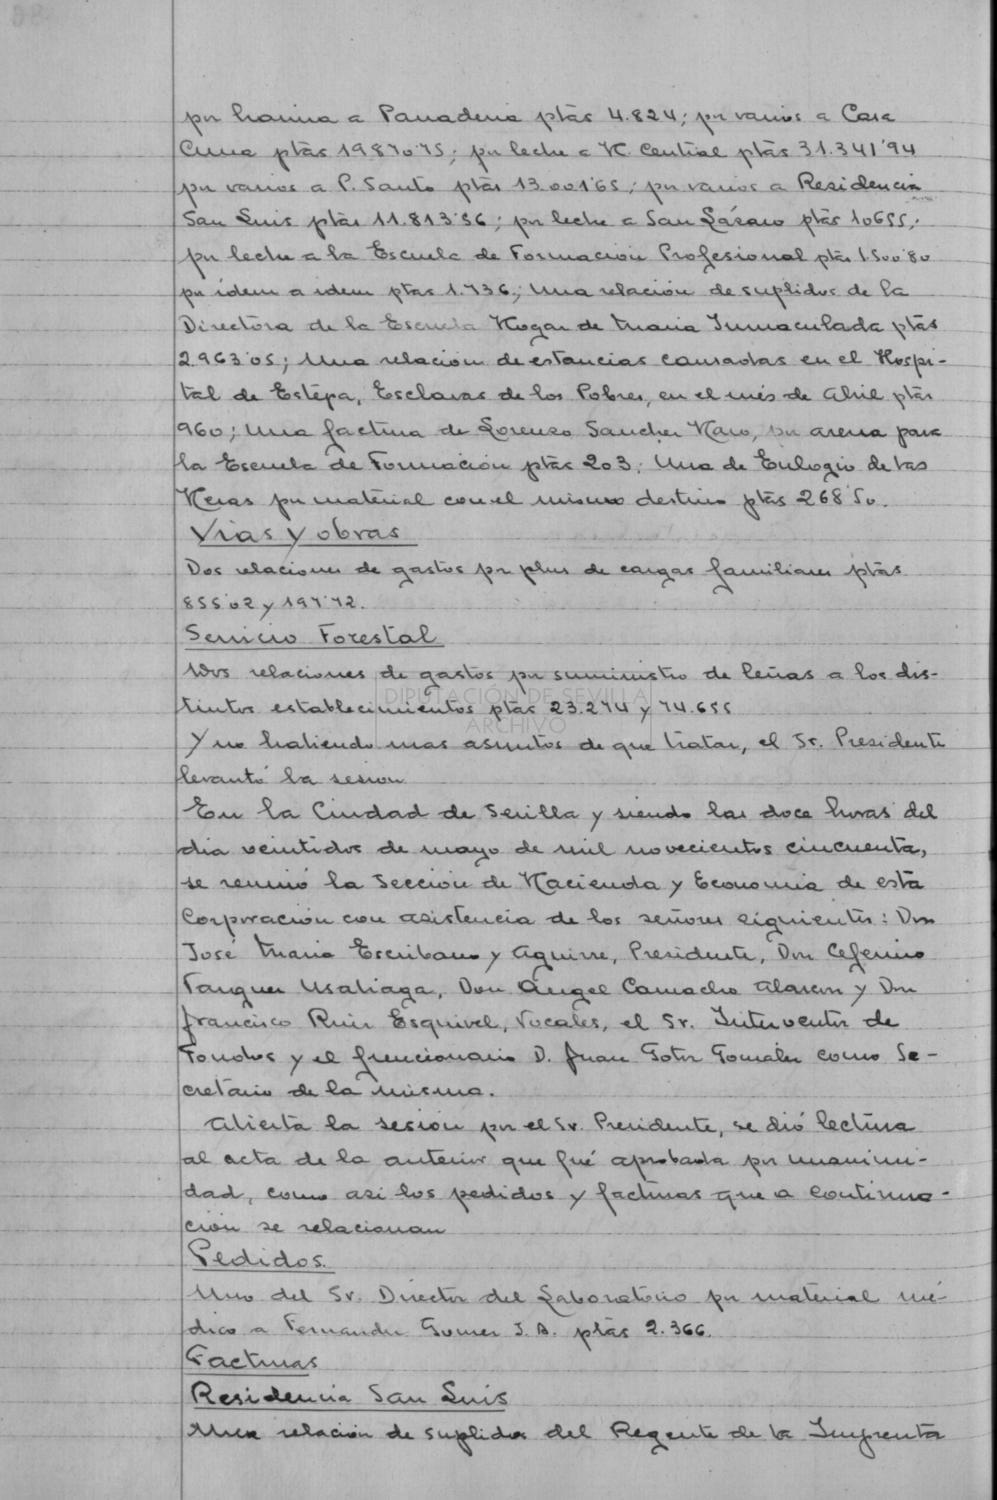 por harina a Panaderia ptãs 4.824; por varios a Casa
Cuna ptãs 19870'75; por leche a H. Central ptãs 31.341'94
por varios a P. Santo ptãs 13.001'65; por varios a Residencia
San Luis ptãs 11.813'36; por leche a San Lázaro ptãs 10655;
por leche a la Escuela de Formación Profesional ptãs 1.500'80
por idem a idem ptas 1.736; Una relación de suplidos de la
Directora de la Escuela Hogar de Maria Inmaculada ptãs
2.963'05; Una relación de estancias causadas en el Hospi-
tal de Estepa, Esclavas de los Pobres, en el mes de Abril ptãs
960; Una factura de Lorenzo Sanchez Haro, por arena para
la Escuela de Formación ptãs 203; Una de Eulogio de las
Heras por material con el mismo destino ptãs 268'50.
Vias y obras
Dos relaciones de gastos por plus de cargas familiares ptãs
855'02 y 197'72.
Servicio Forestal
Dos relaciones de gastos por suministro de leñas a los dis-
tintos establecimientos ptãs 23.274 y 74.655
DIPUTACIÓN DE SEVILLA
ARCHIVO
Y no habiendo mas asuntos de que tratar, el Sr. Presidente
levantó la sesion
En la Ciudad de Sevilla y siendo las doce horas del
dia veintidos de mayo de mil novecientos cincuenta,
se reunió la Sección de Hacienda y Economia de esta
Corporación con asistencia de los señores siguientes: Don
José Maria Escribano y Aguirre, Presidente, Don Ceferino
Usabiaga, Don Ángel Camacho Alarcon y Don
Francisco Ruiz Esquivel, Vocales, el Sr. Interventor de
Fondos y el funcionario D. Juan Gonzalez como Se-
cretario de la misma.
Abierta la sesion por el Sr. Presidente, se dió lectura
al acta de la anterior que fué aprobada por unanimi-
dad, como asi los pedidos y facturas que a continua-
ción se relacionan
Pedidos.
Uno del Sr. Director del Laboratorio por material mé-
dico a Fernandez Gomez S.A. ptãs 2.366.
Facturas
Residencia San Luis
Una relación de suplidos del Regente de la Imprenta